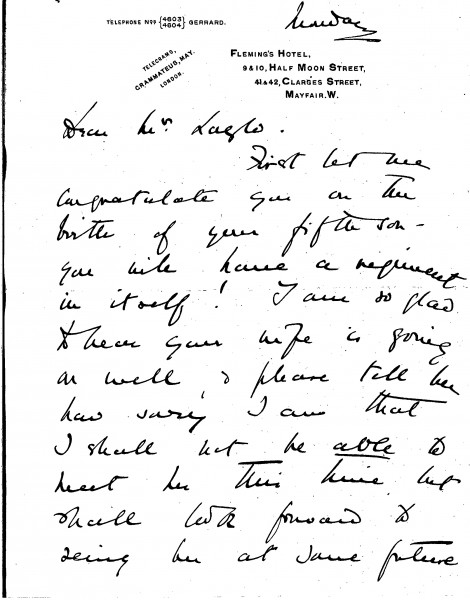 Monday
TELEPHONE Nos {4603/4604} GERRARD.
TELEGRAMS,
GRAMMATEUS, MAY.
LONDON.
FLEMING'S HOTEL,
9&10, HALF MOON STREET,
41&42, CLARGES STREET,
MAYFAIR. W.
Dear Mr Laszlo.
First let me
congratulate you on the
birth of your fifth son –
you will have a regiment
in itself! I am so glad
to hear your wife is going
on well, & please tell her
how sorry I am that
I shall not be able to
meet her this time but
shall look forward to
seeing her at some future